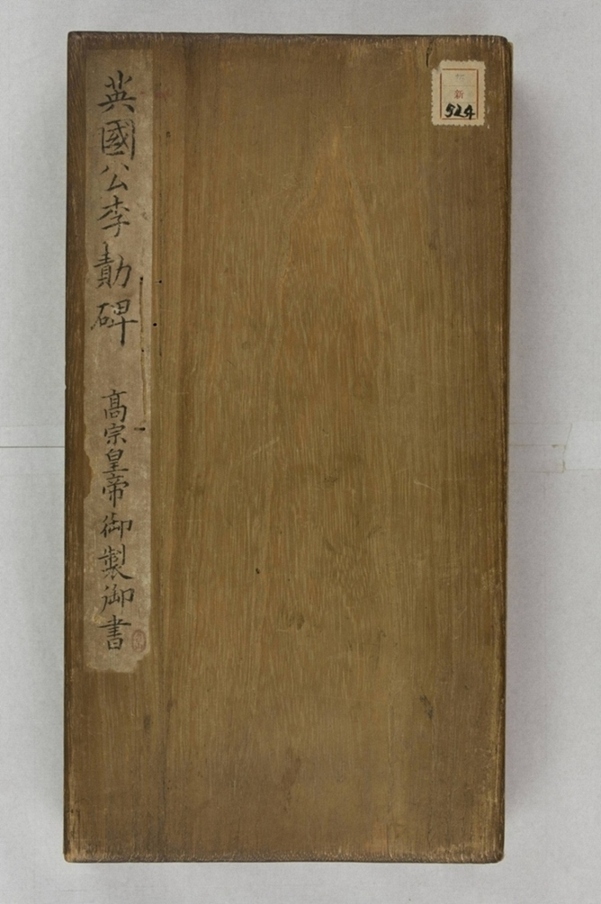 英國公李勣碑 高宗皇帝御製御書
新
524